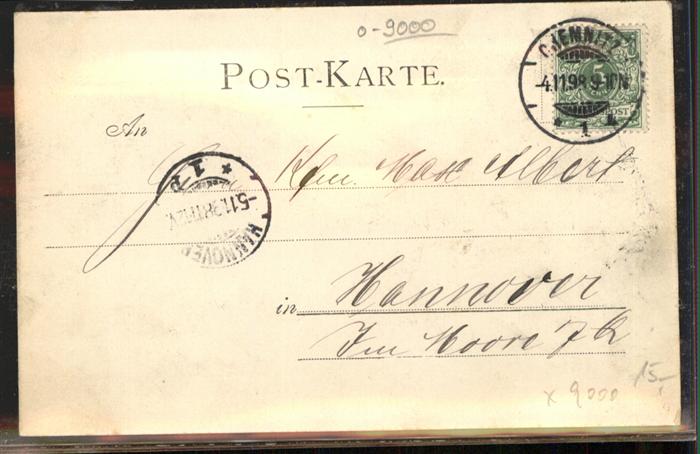 o-9000
POST-KARTE.
CHEMNITZ
-4.11.98.9-10N.
* 1 k
5
POST
An
Herrn Kfm. Max Albert
* 1.P
-5.11.98.11-12.V.
HANNOVER
in Hannover
Im Moore 7
15,-
x 9000